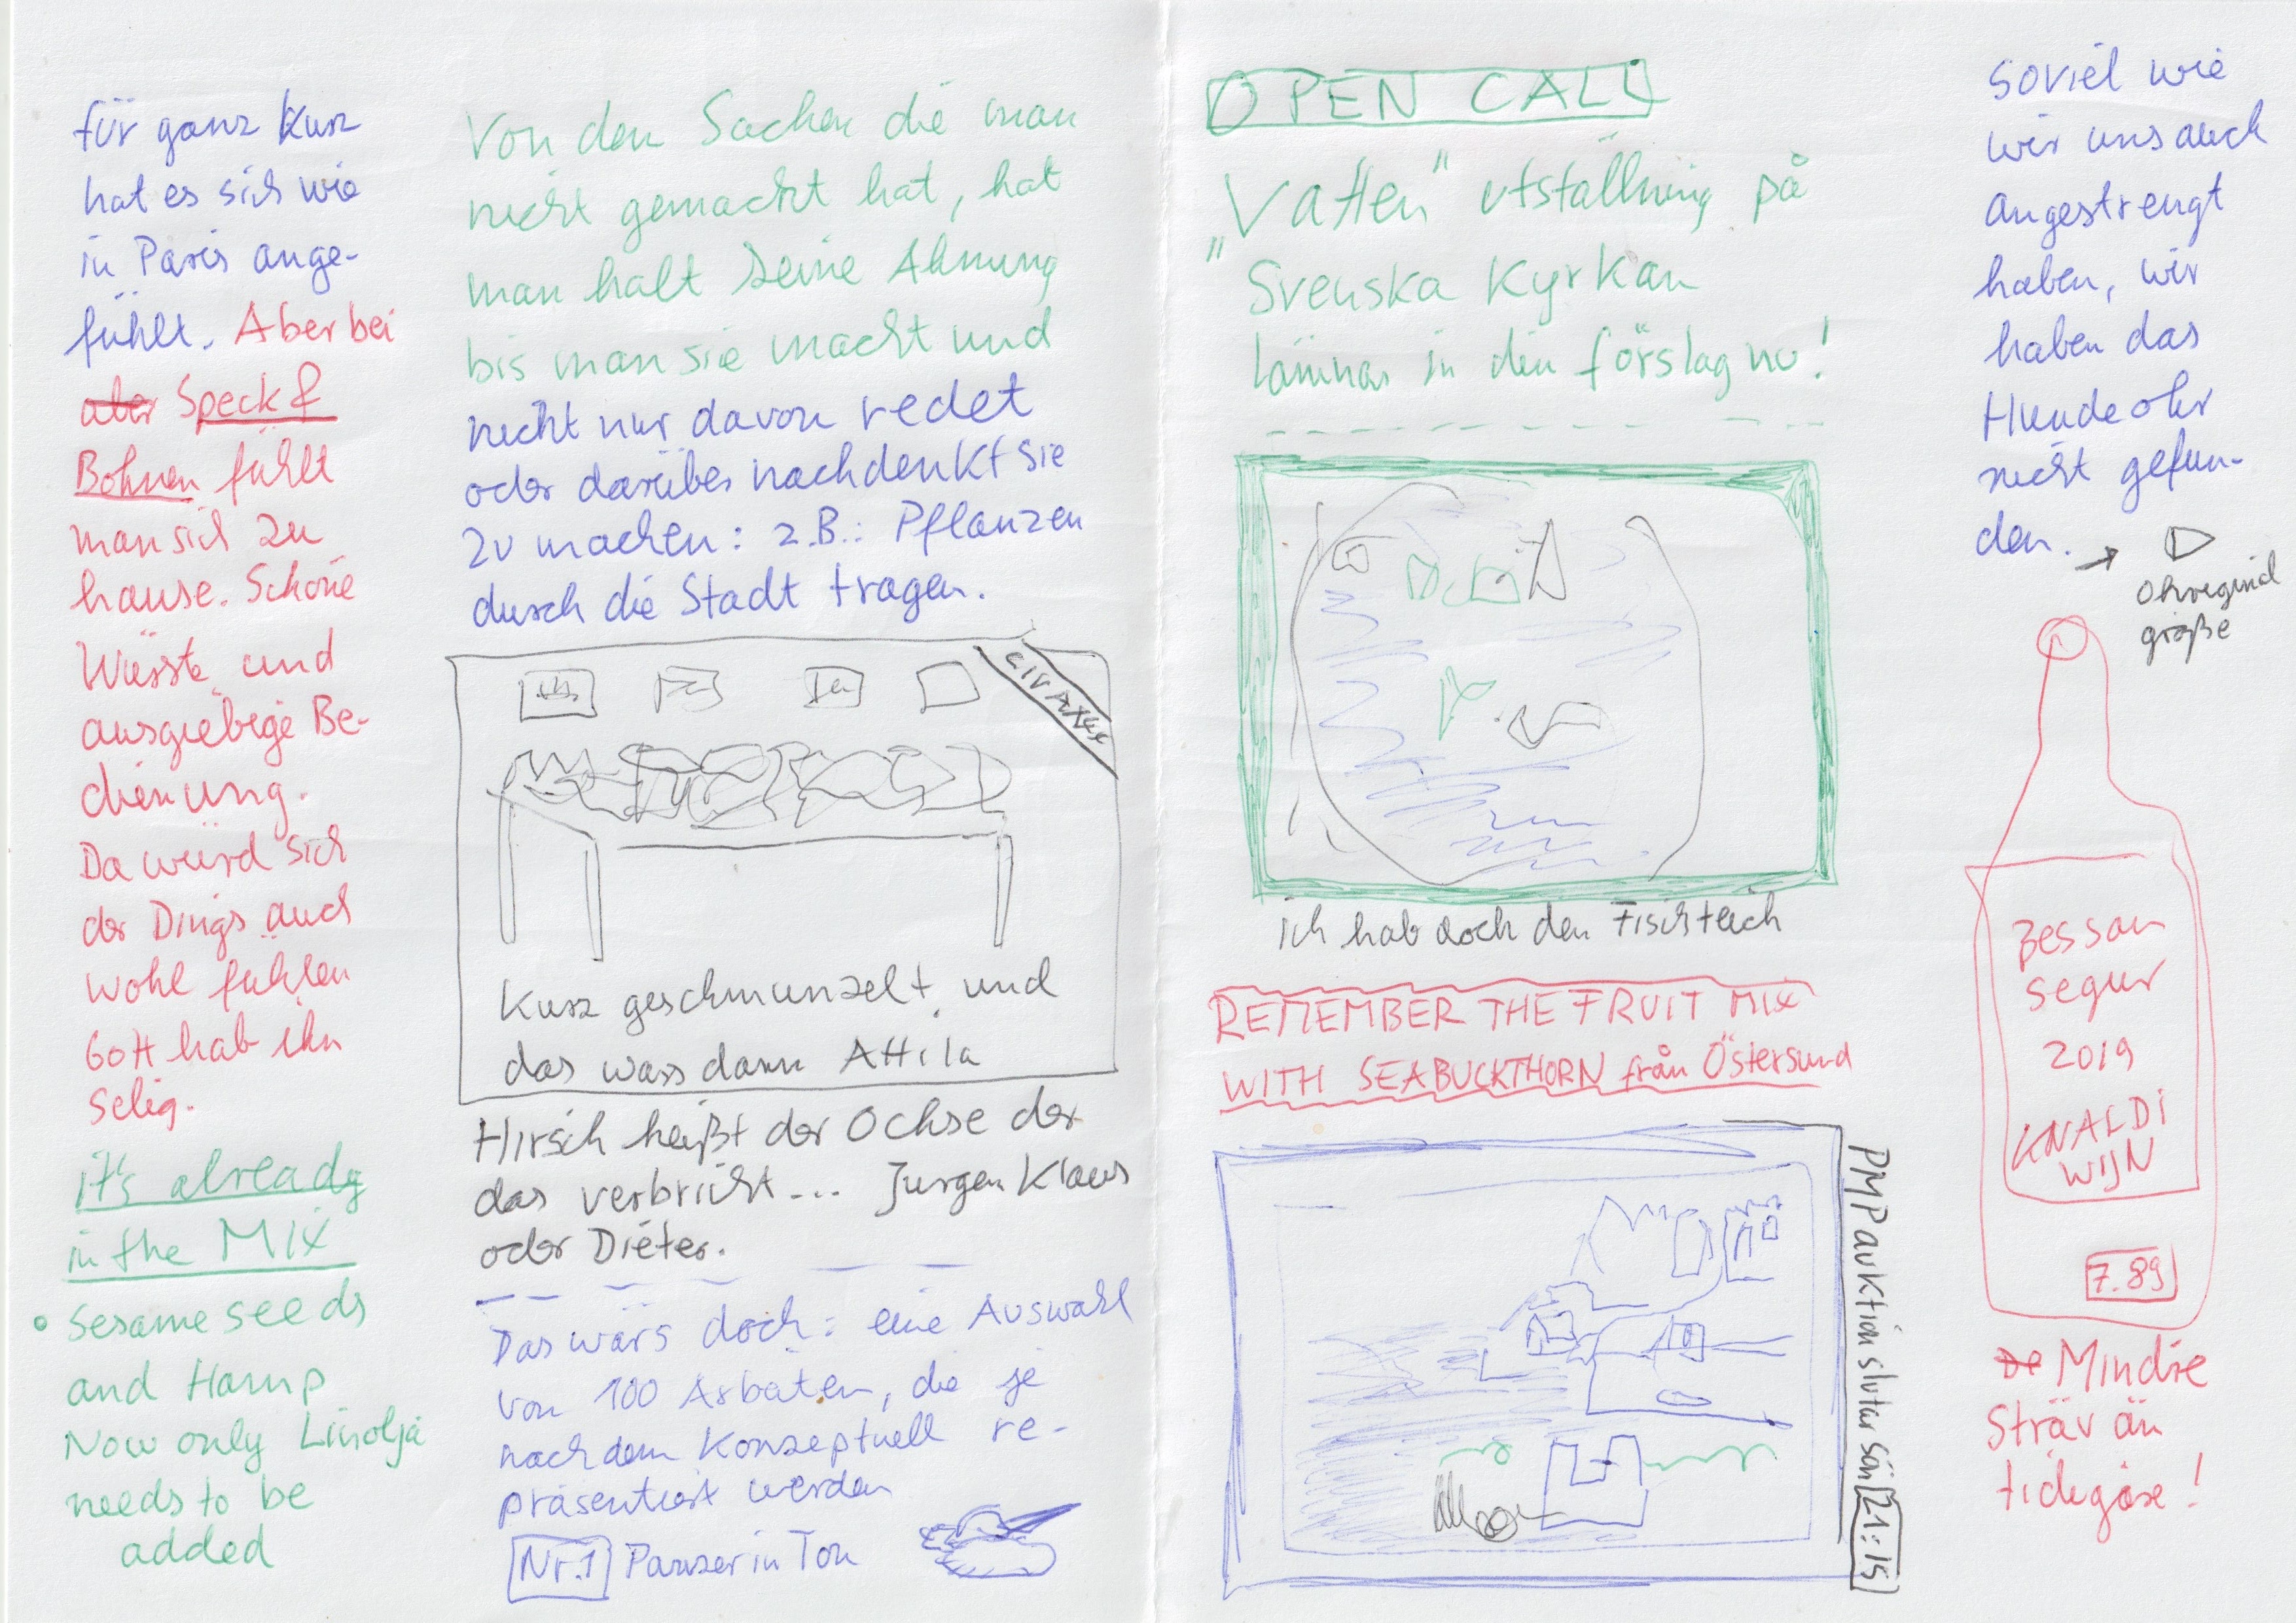 für ganz kurz
hat es sich wie
in Paris ange-
fühlt. Aber bei
aber Speck &
Bohnen fühlt
man sich zu
hause. Schöne
Würste und
ausgiebige Be-
dienung.
Da würd sich
der Dings auch
wohl fühlen
Gott hab ihn
selig.
it's already
in the Mix
• Sesame seeds
and Hamp
Now only Linolja
needs to be
added
Von den Sachen die man
nicht gemacht hat, hat
man halt keine Ahnung
bis man sie macht und
nicht nur davon redet
oder darüber nachdenkt sie
zu machen: z.B.: Pflanzen
durch die Stadt tragen.
Kurz geschmunzelt und
das wars dann Attila
Hirsch heißt der Ochse der
das verbricht... Jurgen Klaus
oder Dieter.
Das wärs doch: eine Auswahl
von 100 Arbeiten, die je
nachdem Konzeptuell re-
präsentiert werden
Nr.1 Panzer in Ton
OPEN CALL
"Vatten" utställning på
"Svenska Kyrkan
lämnar in din förslag nu!
ich hab doch den Fischteich
REMEMBER THE FRUIT MIX
WITH SEABUCKTHORN från Östersund
PMP auktion slutar sön 21:15
soviel wie
wir uns auch
angestrengt
haben, wir
haben das
Hundeohr
nicht gefun-
den. →
größe
Bessan
segur
2019
KNALDI
WIJN
7.89
De Mindre
Sträv än
tidigare!